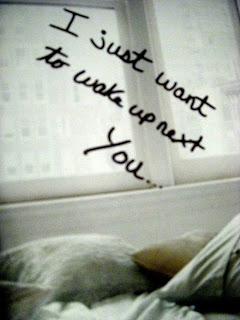 I just want
to wake up next
You...